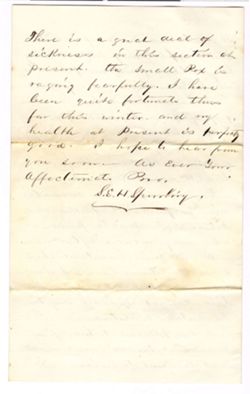 There is a great deal of
sickness in this section at
present. the Small Pox is
raging fearfully. I have
been quite fortunate thus
far this winter and my
health at present is perfectly
good. I hope to hear from
you soon. As Ever Your
Affectionate Bro,
S.E.H. Spurling.